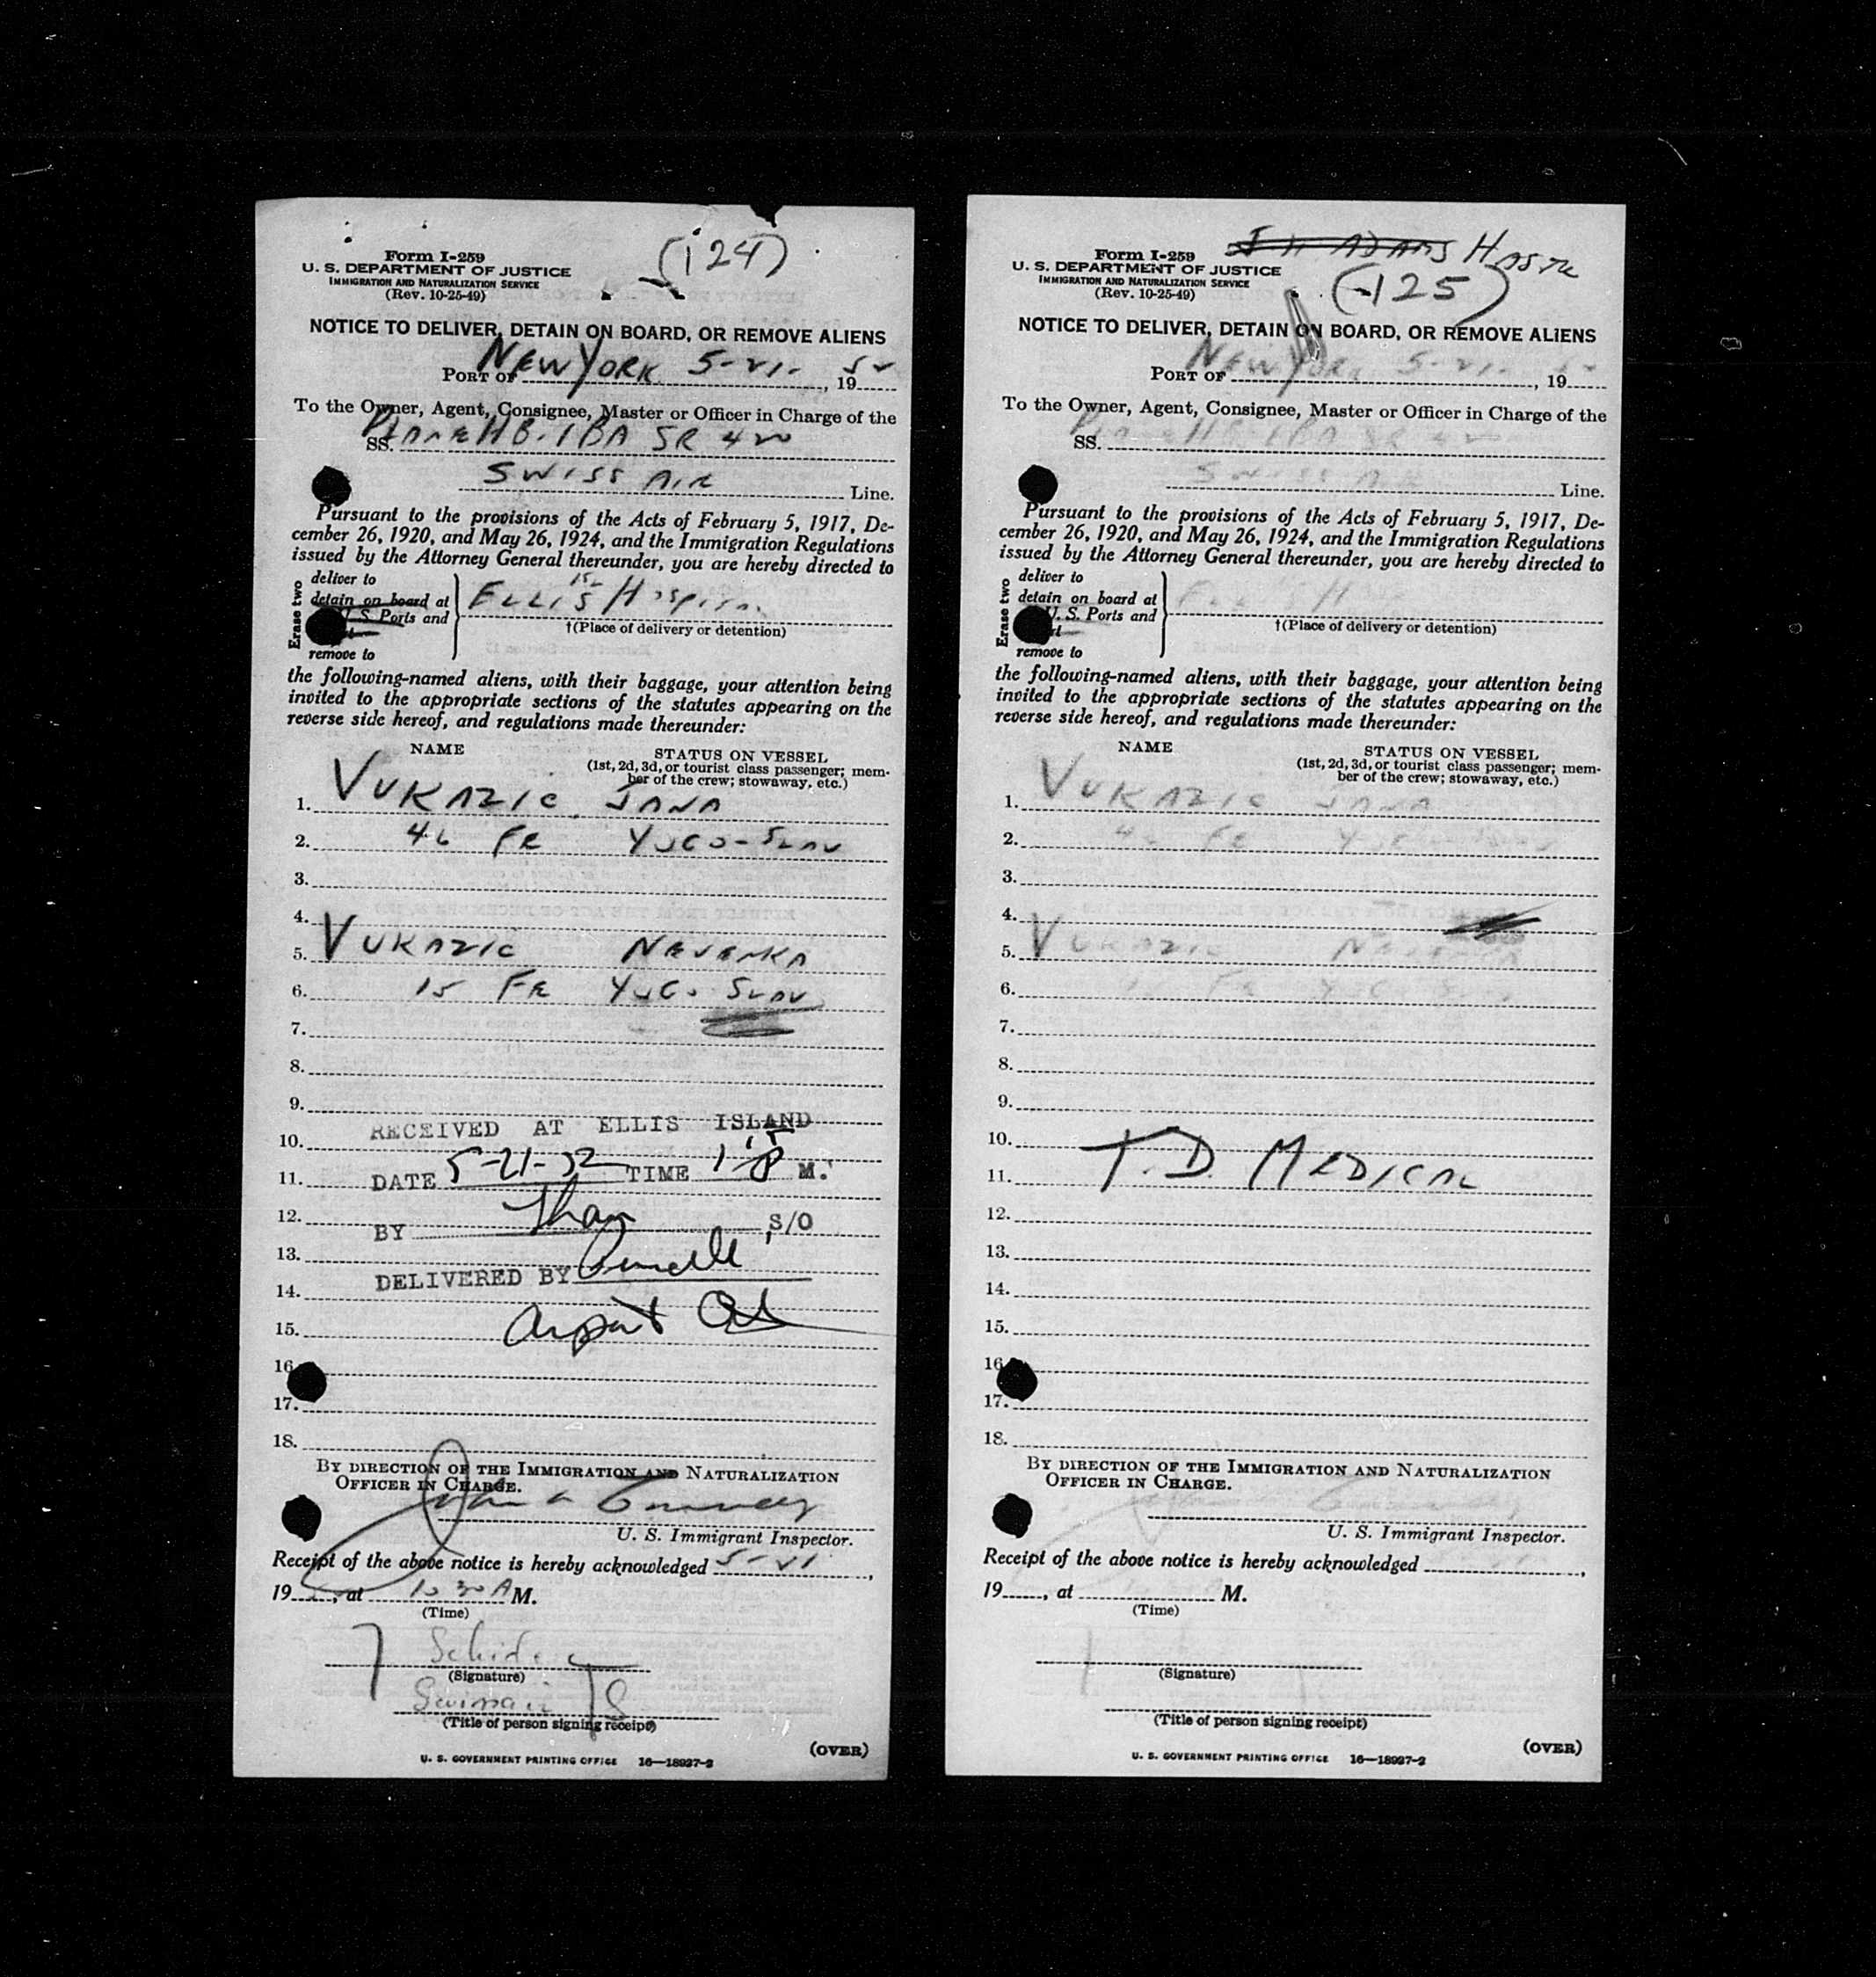 (124)
Form I-259
U. S. DEPARTMENT OF JUSTICE
IMMIGRATION AND NATURALIZATION SERVICE
(Rev. 10-25-49)
NOTICE TO DELIVER, DETAIN ON BOARD, OR REMOVE ALIENS
PORT OF NEW YORK 5-21- , 1952
To the Owner, Agent, Consignee, Master or Officer in Charge of the
SS. PLANE HB-IBA SR 420
SWISS AIR Line.
Pursuant to the provisions of the Acts of February 5, 1917, De-
cember 26, 1920, and May 26, 1924, and the Immigration Regulations
issued by the Attorney General thereunder, you are hereby directed to
Erase two
deliver to
detain on board at
U. S. Ports and
remove to
ELLIS IS HOSPITAL
†(Place of delivery or detention)
the following-named aliens, with their baggage, your attention being
invited to the appropriate sections of the statutes appearing on the
reverse side hereof, and regulations made thereunder:
NAME
STATUS ON VESSEL
(1st, 2d, 3d, or tourist class passenger; mem-
ber of the crew; stowaway, etc.)
1. VUKAZIC JANA
2. 46 FE YUGO-SLAV
3.
4.
5. VUKAZIC NEVENKA
6. 15 FE YUGO SLAV
7.
8.
9.
RECEIVED AT ELLIS ISLAND
10.
11. DATE 5-21-52 TIME 1 15 P M.
12.
BY S/O
13.
DELIVERED BY
14.
15. Airport
16.
17.
18.
BY DIRECTION OF THE IMMIGRATION AND NATURALIZATION
OFFICER IN CHARGE.
U. S. Immigrant Inspector.
Receipt of the above notice is hereby acknowledged 5-21,
19, at 10 30 A M.
(Time)
(Signature)
Swissair
(Title of person signing receipt)
(OVER)
U. S. GOVERNMENT PRINTING OFFICE 16—18927-2
J H ADAMS
(125)
Form I-259
U. S. DEPARTMENT OF JUSTICE
IMMIGRATION AND NATURALIZATION SERVICE
(Rev. 10-25-49)
NOTICE TO DELIVER, DETAIN ON BOARD, OR REMOVE ALIENS
PORT OF NEW YORK 5-21- , 19
To the Owner, Agent, Consignee, Master or Officer in Charge of the
SS. PLANE HB-IBA SR 420
SWISS AIR Line.
Pursuant to the provisions of the Acts of February 5, 1917, De-
cember 26, 1920, and May 26, 1924, and the Immigration Regulations
issued by the Attorney General thereunder, you are hereby directed to
Erase two
deliver to
detain on board at
U. S. Ports and
remove to
†(Place of delivery or detention)
the following-named aliens, with their baggage, your attention being
invited to the appropriate sections of the statutes appearing on the
reverse side hereof, and regulations made thereunder:
NAME
STATUS ON VESSEL
(1st, 2d, 3d, or tourist class passenger; mem-
ber of the crew; stowaway, etc.)
1. VUKAZIC JANA
2. 46 FE YUGO-SLAV
3.
4.
5. VUKAZIC NEVENKA
6. 15 FE YUGO SLAV
7.
8.
9.
10.
11. T.D. MEDICAL
12.
13.
14.
15.
16.
17.
18.
BY DIRECTION OF THE IMMIGRATION AND NATURALIZATION
OFFICER IN CHARGE.
U. S. Immigrant Inspector.
Receipt of the above notice is hereby acknowledged ,
19, at M.
(Time)
(Signature)
(Title of person signing receipt)
(OVER)
U. S. GOVERNMENT PRINTING OFFICE 16—18927-2